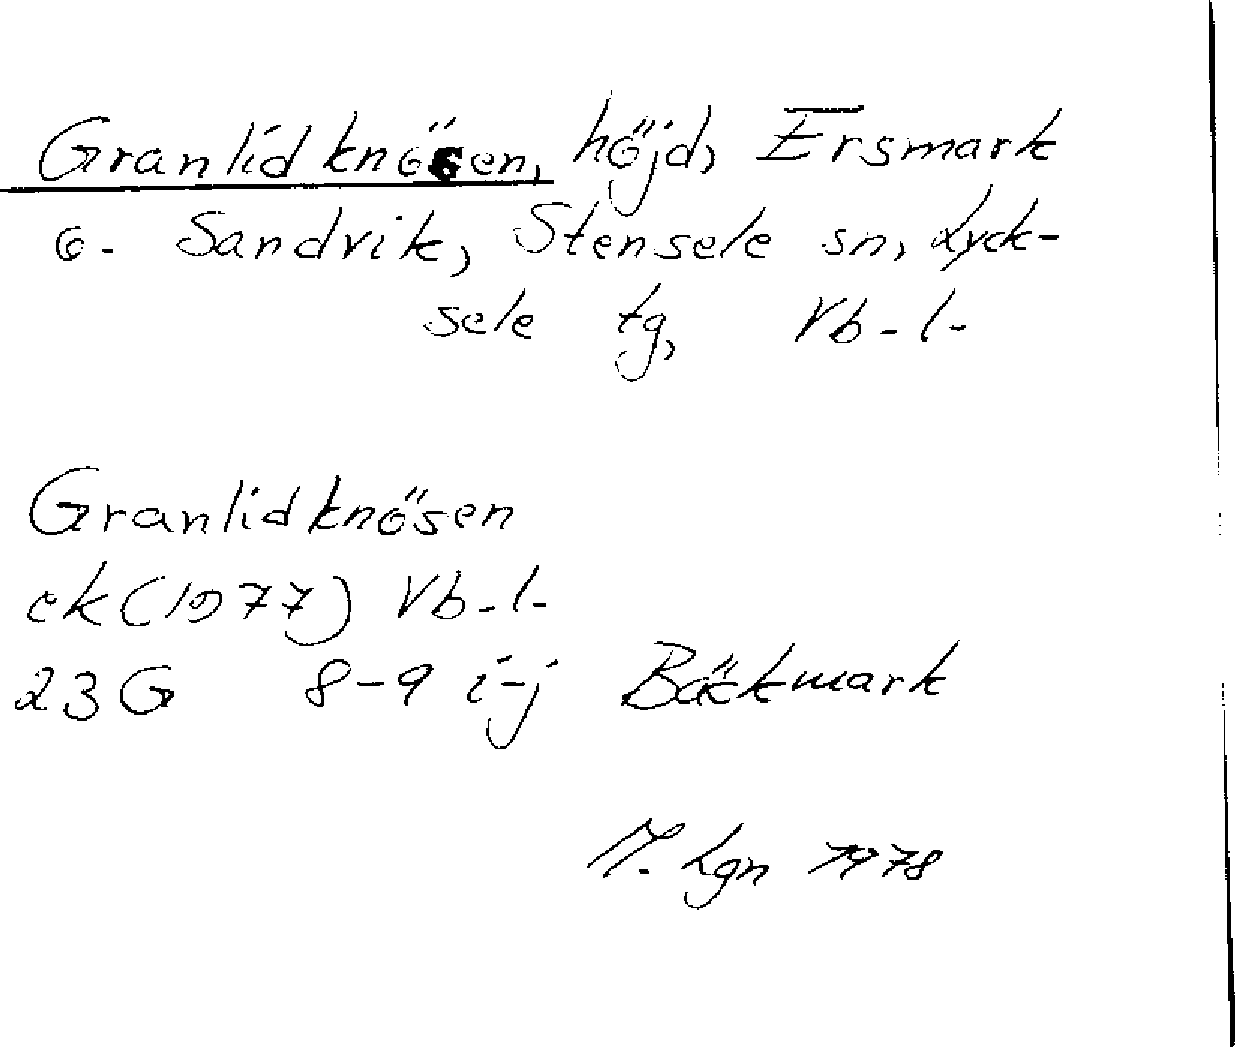 Granlidknösen, höjd, Ersmark
o. Sandvik, Stensele sn, Lyck-
sele tg, Vb-l-
Granlidknösen
ek (1977) Vb-l-
23G 8-9 i-j Bäckmark
Lgn 1978